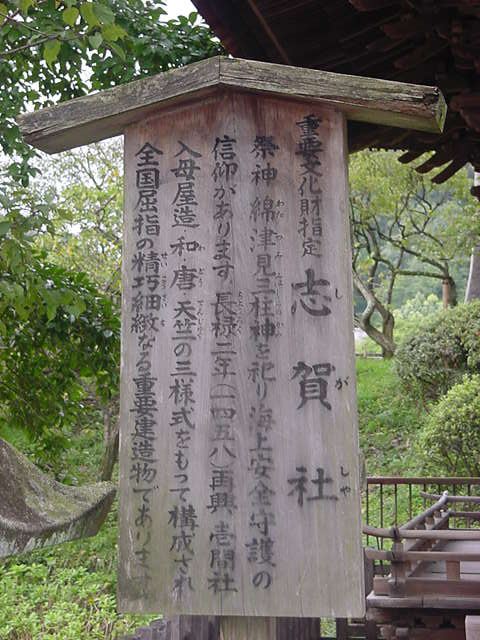 重要文化財指定 志賀社
しがしゃ
祭神 綿津見三柱神を祀り海上安全守護の
信仰があります。長禄二年（一四五八）再興、壱間社
入母屋造、和・唐・天竺の三様式をもって構成され
全国屈指の精巧細緻なる重要建造物であります。